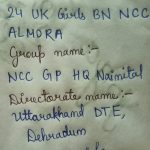 24 UK Girls BN NCC
ALMORA
Group name:-
NCC GP HQ Nainital
Directorate name:-
Uttarakhand DTE,
Dehradun